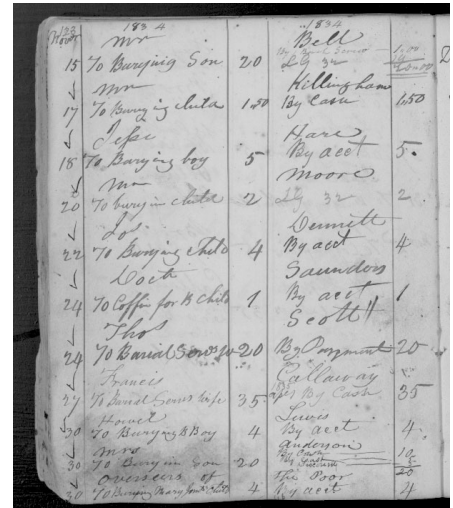 1834 1834
Novr Mr Bell
15 To Burying Son 20 Lg 32 20.00
Mr Killingham
17 To Burying child 1.50 By Cash 1.50
Jesse Hare
18 To Burying boy 5 By acct 5.
Mr Moore
20 To buryin child 2 Lg 32 2
Jos Dennett
22 To Burying child 4 By acct 4
Doct Saunders
24 To Coffin for B child 1 By acct 1
Thos Scott
24 To Burial 20 By Payment 20
Francis Callaway
27 To Burial 35 By Cash 35
Howel Lewis
30 To Burying B Boy 4 By acct 4
Mrs Anderson
30 To Buryin Son 20 By Cash 10
20
overseers of the Poor
30 To Burying Mary 4 By acct 4